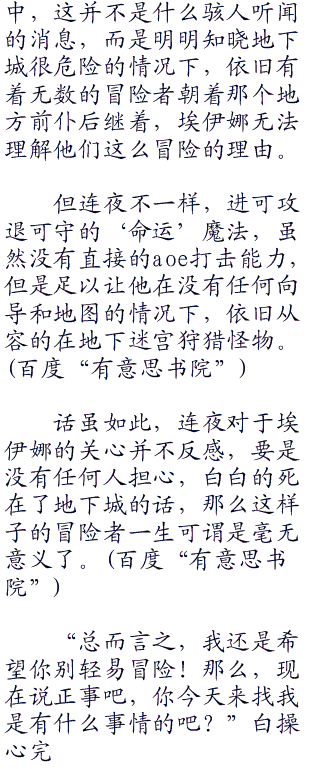 中，这并不是什么骇人听闻
的消息，而是明明知晓地下
城很危险的情况下，依旧有
着无数的冒险者朝着那个地
方前仆后继着，埃伊娜无法
理解他们这么冒险的理由。
但连夜不一样，进可攻
退可守的‘命运’魔法，虽
然没有直接的aoe打击能力，
但是足以让他在没有任何向
导和地图的情况下，依旧从
容的在地下迷宫狩猎怪物。
(百度“有意思书院”)
话虽如此，连夜对于埃
伊娜的关心并不反感，要是
没有任何人担心，白白的死
在了地下城的话，那么这样
子的冒险者一生可谓是毫无
意义了。(百度“有意思书
院”)
“总而言之，我还是希
望你别轻易冒险！那么，现
在说正事吧，你今天来找我
是有什么事情的吧？”白操
心完